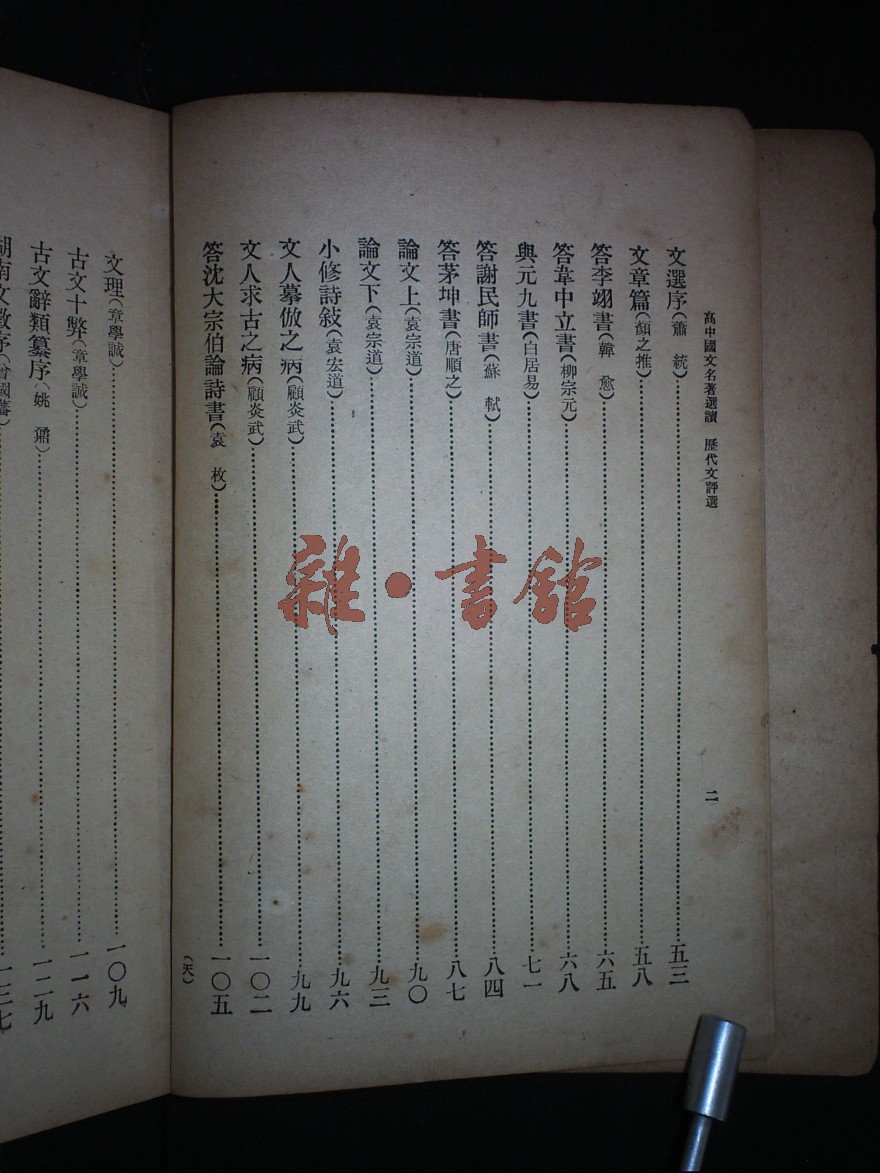 高中國文名著選讀　歷代文評選　二
文選序(蕭　統)……五三
文章篇(顏之推)……五八
答李翊書(韓　愈)……六五
答韋中立書(柳宗元)……六八
與元九書(白居易)……七一
答謝民師書(蘇　軾)……八四
答茅坤書(唐順之)……八七
論文上(袁宗道)……九〇
論文下(袁宗道)……九三
小修詩敍(袁宏道)……九六
文人摹倣之病(顧炎武)……九九
文人求古之病(顧炎武)……一〇二
答沈大宗伯論詩書(袁　枚)……一〇五
(天)
文理(章學誠)……一〇九
古文十弊(章學誠)……一一六
古文辭類纂序(姚　鼐)……一二九
湖南文徵序(曾國藩)……一三七
雜·書館